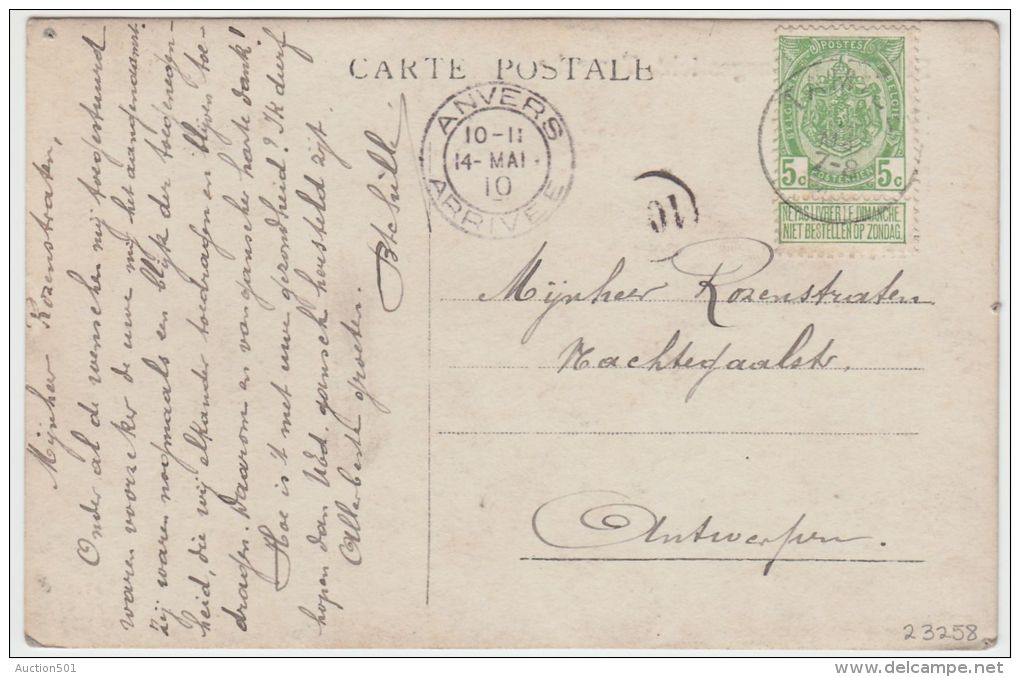 CARTE POSTALE
Mijnheer Rozenstraten,
Onder al de wenschen mij toegestuurd
waren voorzeker de uwe mij het aangenaamst.
Zij waren nogmaals een blijk der toegenegen-
heid, die wij elkander toedragen en blijven toe-
dragen. Daarom en van ganscher harte dank!
Hoe is 't met uwe gezondheid? Ik durf
hopen dan UEd. gansch hersteld zijt
Allerbeste groeten.
ANVERS
10-11
14-MAI
10
ARRIVÉE
10
POSTES
BELGIQUE
BELGIË
5c 5c
POSTERIJEN
NE PAS LIVRER LE DIMANCHE
NIET BESTELLEN OP ZONDAG
7-8
Mijnheer Rozenstraten
Nachtegaalstr.
Antwerpen.
23258
Auction501
http://www.delcampe.net